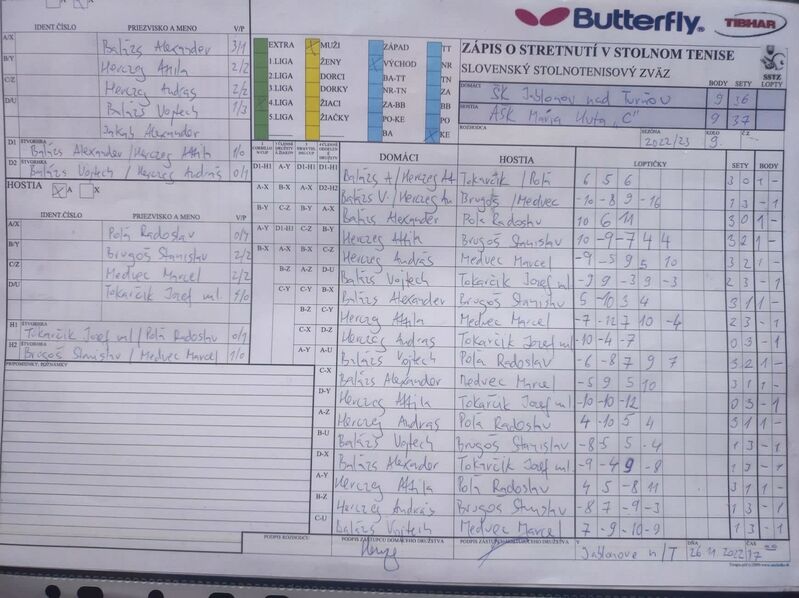 Butterfly.
TIBHAR
ZÁPIS O STRETNUTÍ V STOLNOM TENISE
SLOVENSKÝ STOLNOTENISOVÝ ZVÄZ
SSTZ
BODY SETY LOPTY
DOMÁCI ŠK Jablonov nad Turňou 9 36
HOSTIA AŠK Mária Huta "C" 9 37
ROZHODCA SEZÓNA 2022/23 KOLO 9. Č.Z.
IDENT.ČÍSLO PRIEZVISKO A MENO V/P
A/X Balázs Alexander 3/1
B/Y Herczeg Attila 2/2
C/Z Herczeg András 2/2
D/U Balázs Vojtech 1/3
Jakab Alexander
D1 ŠTVORHRA Balázs Alexander / Herczeg Attila 1/0
D2 ŠTVORHRA Balázs Vojtech / Herczeg András 0/1
HOSTIA X A X
IDENT.ČÍSLO PRIEZVISKO A MENO V/P
A/X Polá Radoslav 0/4
B/Y Brugoš Stanislav 2/2
C/Z Medvec Marcel 2/2
D/U Tokarčik Jozef ml. 4/0
H1 ŠTVORHRA Tokarčik Jozef ml / Polá Radoslav 0/1
H2 ŠTVORHRA Brugoš Stanislav / Medvec Marcel 1/0
PRIPOMIENKY, POZNÁMKY
EXTRA
1 LIGA
2 LIGA
3 LIGA
4.LIGA
5.LIGA
MUŽI
ŽENY
DORCI
DORKY
ŽIACI
ŽIAČKY
ZÁPAD
VÝCHOD
BA-TT
NR-TN
ZA-BB
PO-KE
BA
TT
NR
TN
ZA
BB
PO
KE
DOMÁCI HOSTIA LOPTIČKY SETY BODY
Balázs A / Herczeg Att Tokarčik / Polá 6 5 6 3 0 1 -
Balázs V. / Herczeg An Brugoš / Medvec -10 -8 9 -16 1 3 - 1
Balázs Alexander Polá Radoslav 10 6 11 3 0 1 -
Herczeg Attila Brugoš Stanislav 10 -9 -7 4 4 3 2 1 -
Herczeg András Medvec Marcel -9 -5 9 5 10 3 2 1 -
Balázs Vojtech Tokarčik Jozef ml. -9 9 -3 9 -3 2 3 - 1
Balázs Alexander Brugoš Stanislav 5 -10 3 4 3 1 1 -
Herczeg Attila Medvec Marcel -7 -12 7 10 -4 2 3 - 1
Herczeg András Tokarčik Jozef ml -10 -4 -7 0 3 - 1
Balázs Vojtech Polá Radoslav -6 -8 7 9 7 3 2 1 -
Balázs Alexander Medvec Marcel -5 9 5 10 3 1 1 -
Herczeg Attila Tokarčik Jozef ml -10 -10 -12 0 3 - 1
Herczeg András Polá Radoslav 4 -10 5 4 3 1 1 -
Balázs Vojtech Brugoš Stanislav -8 5 5 -4 1 3 - 1
Balázs Alexander Tokarčik Jozef ml. -9 -4 9 -8 1 3 - 1
Herczeg Attila Polá Radoslav 4 5 -8 11 3 1 1 -
Herczeg András Brugoš Stanislav -8 7 -9 -3 1 3 - 1
Balázs Vojtech Medvec Marcel 7 -9 -10 -9 1 3 - 1
PODPIS ROZHODCU PODPIS ZÁSTUPCU DOMÁCEHO DRUŽSTVA
V Jablonove n/T DŇA 26.11.2022 ČAS 17 00